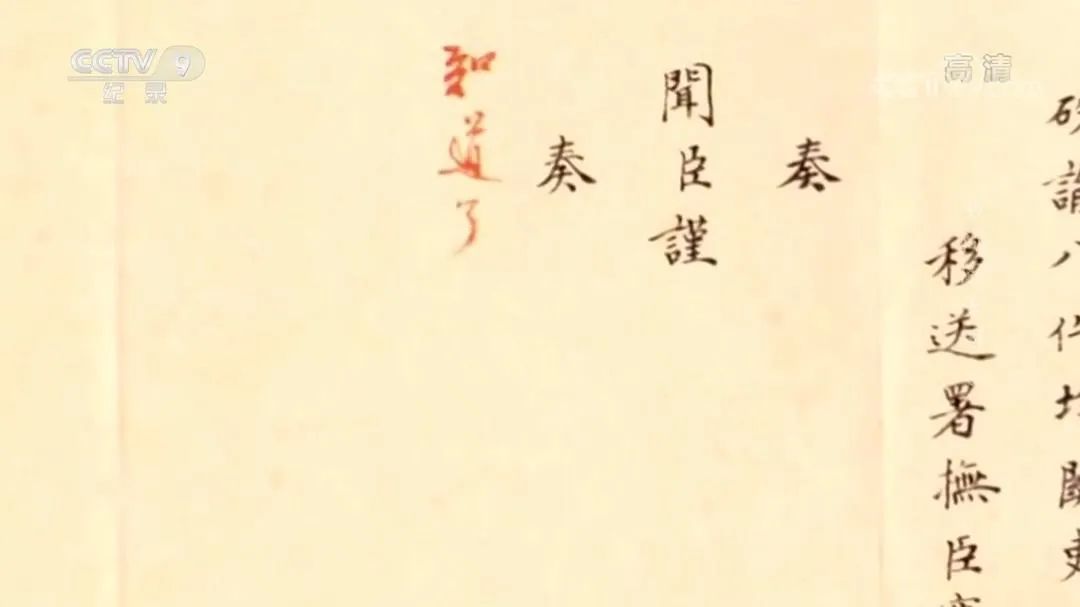 CCTV 9
纪录
高清
諭八件
移送署撫臣
奏
聞臣謹
奏
知道了